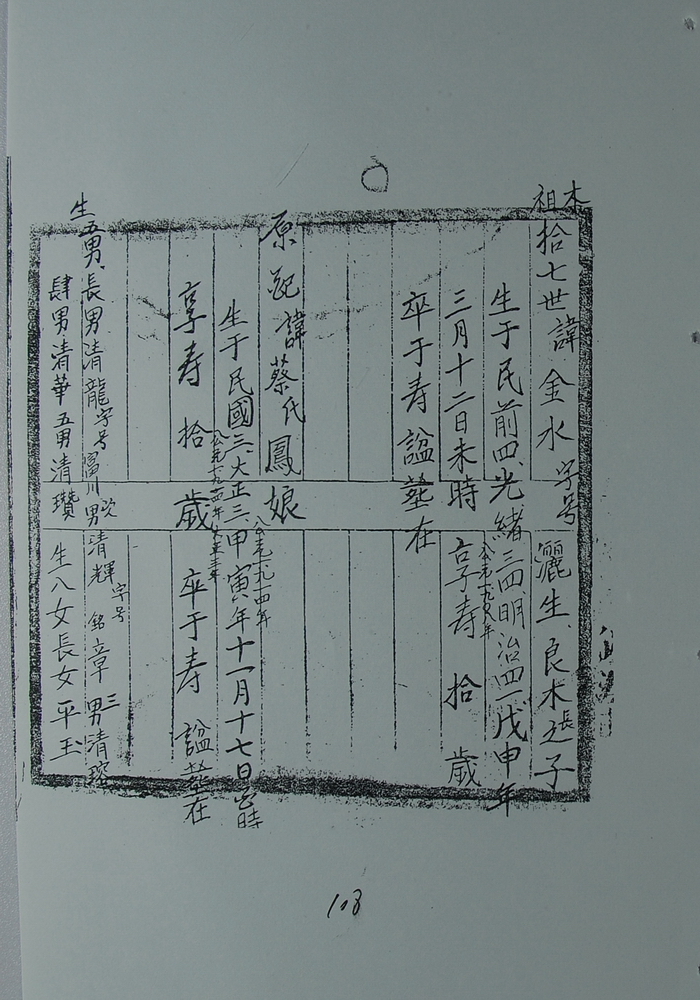 本祖
拾七世諱金水字号灑生、良木之長子
生于民前四、光緒三四明治四一戊申年
公元一九〇八年
三月十二日未時 享寿 拾 歲
卒于寿諡葬在
原配諱蔡氏鳳娘
公元一九一四年
生于民國三、大正三、甲寅年十一月十七日巳時
享寿 拾 歲 卒于寿 諡葬在
生五男、長男清龍字号富川次男清輝字号銘章三男清瑢
肆男清華五男清瓚 生八女長女平玉
108